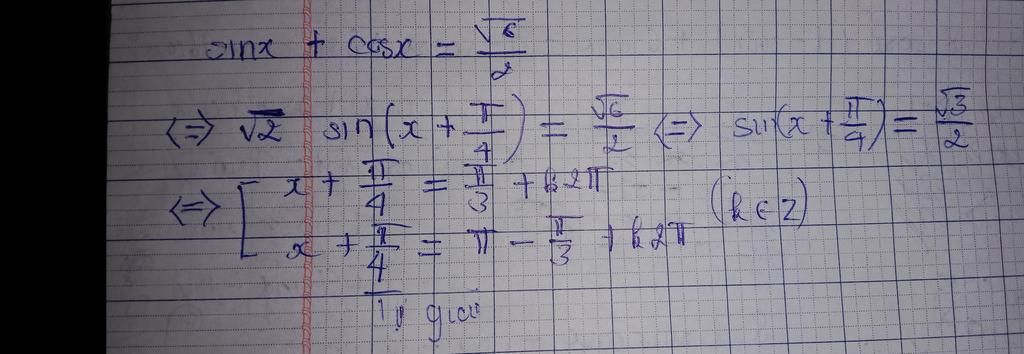 sinx + cosx = √6/2
<=> √2 sin(x + π/4) = √6/2 <=> sin(x + π/4) = √3/2
<=> [ x + π/4 = π/3 + k2π
x + π/4 = π - π/3 + k2π (k ∈ Z)
Tự giải